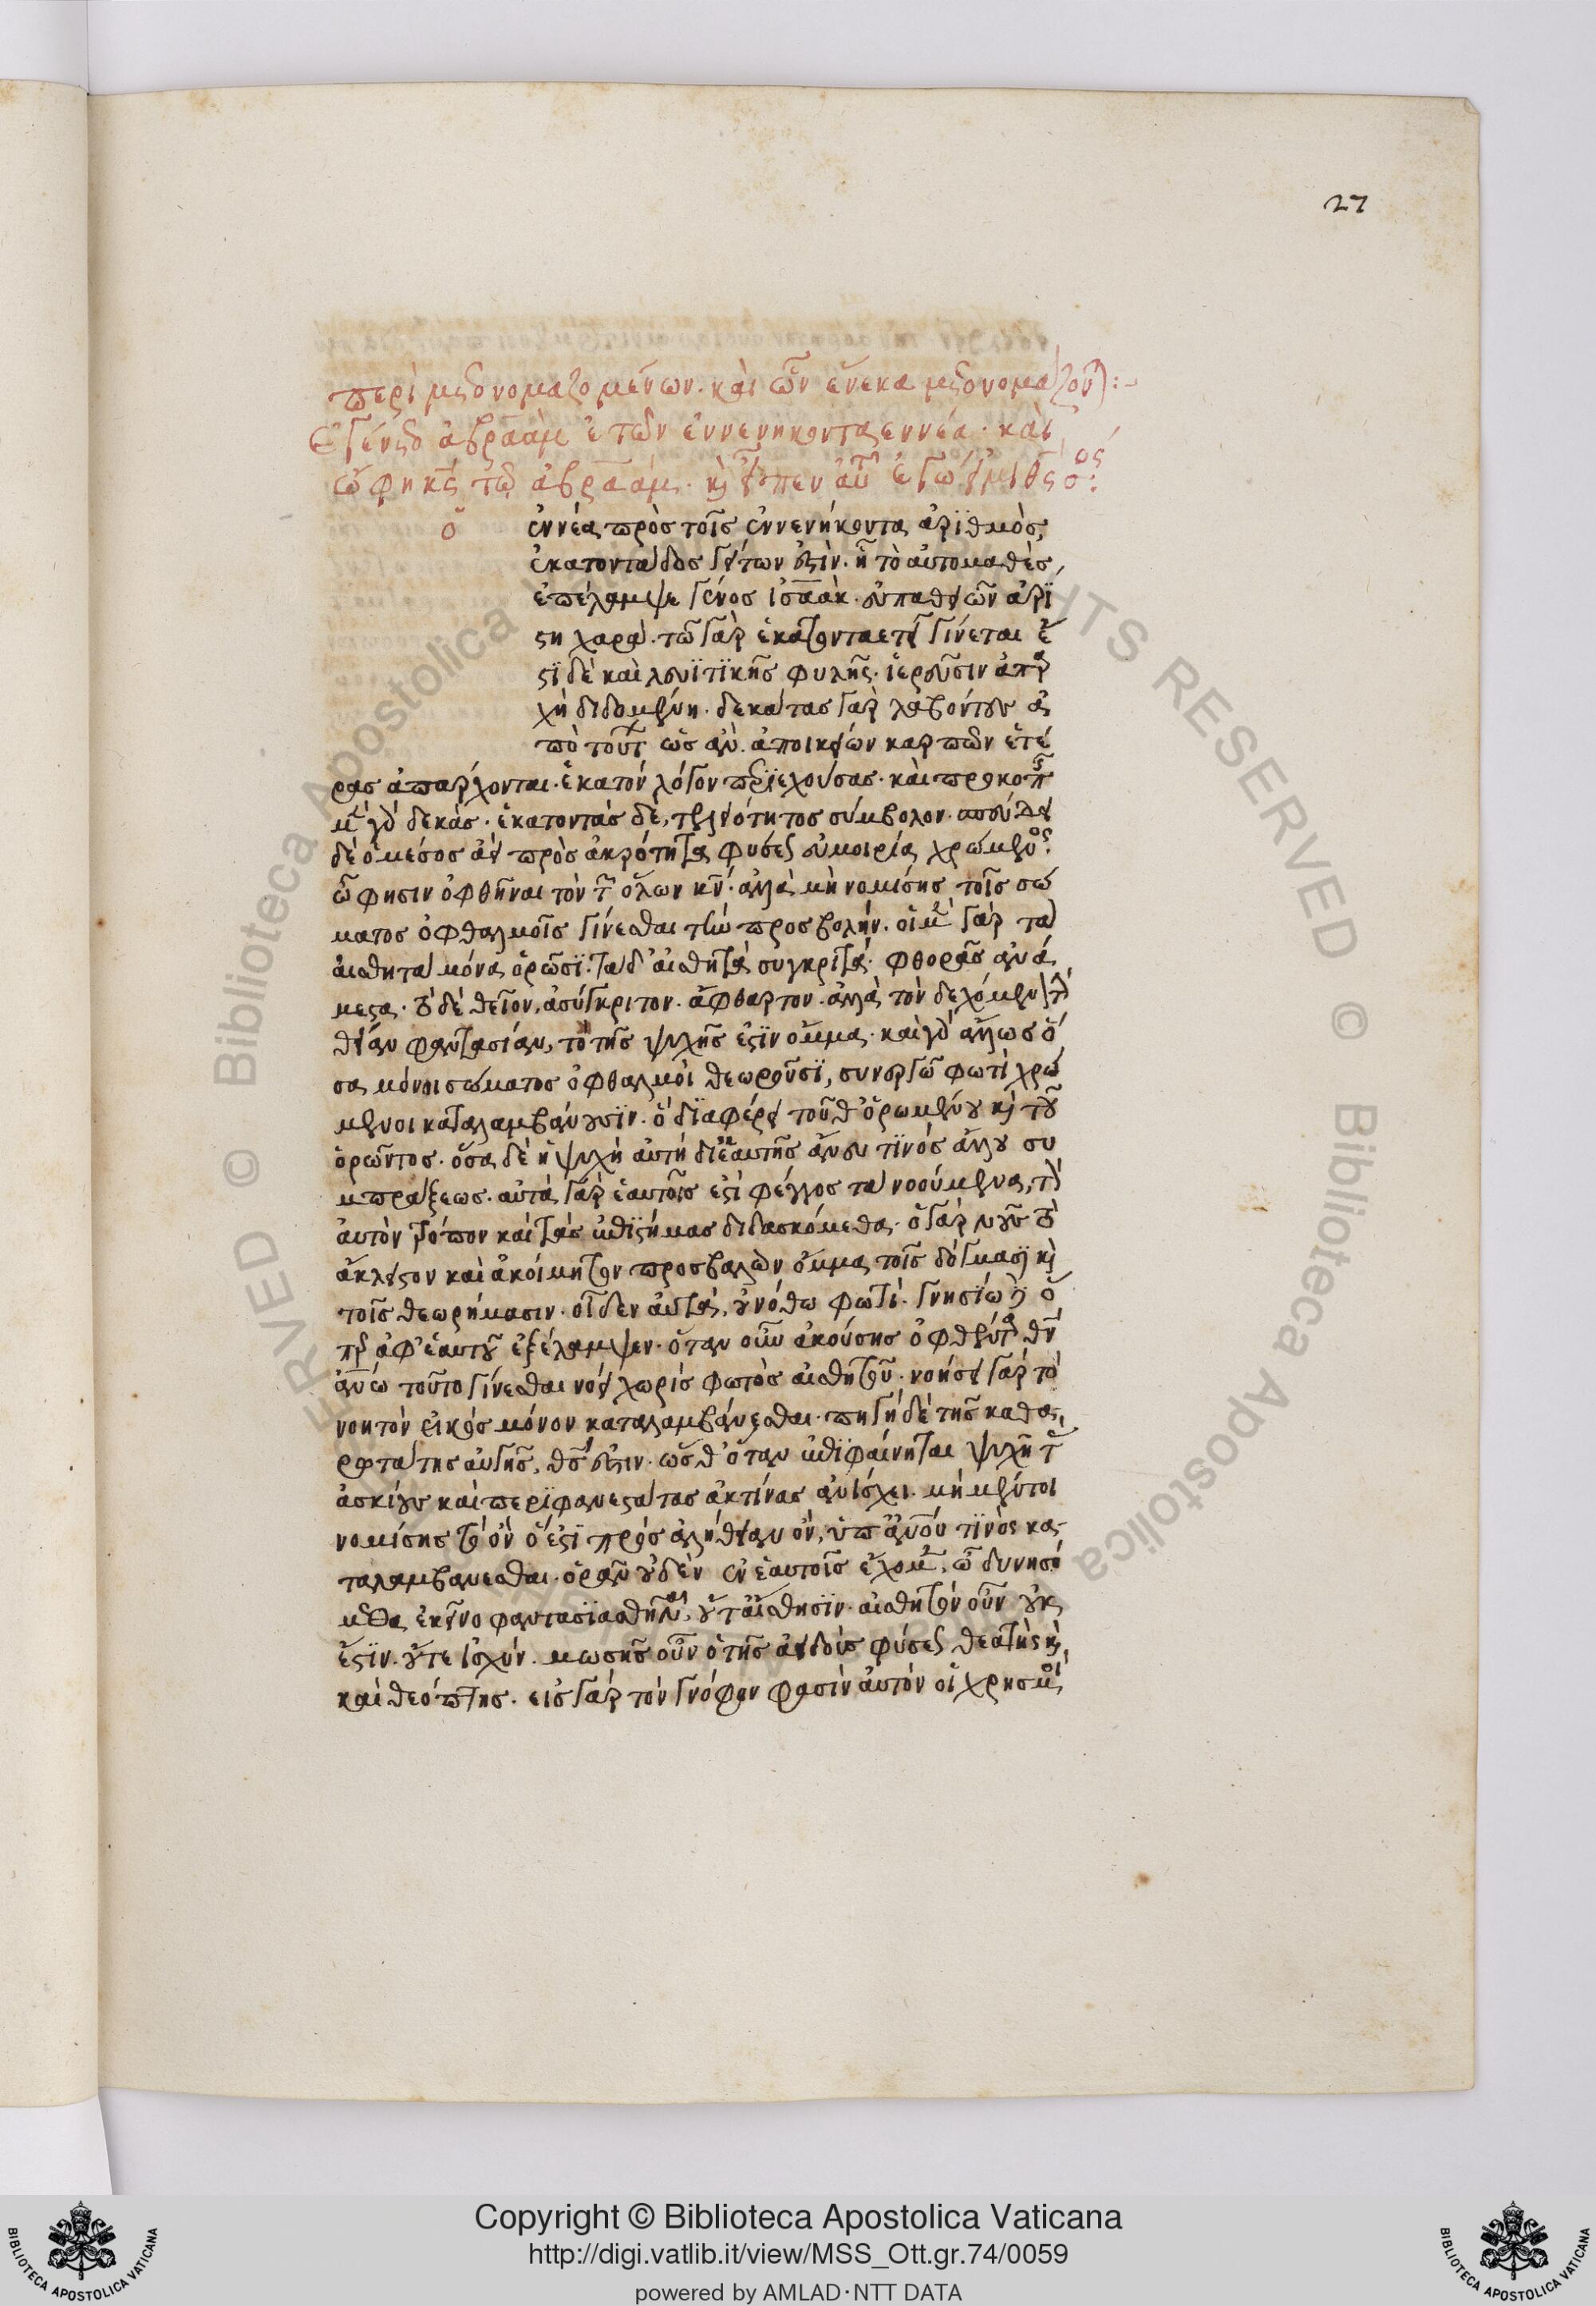 27
περὶ μετονομαζομένων. καὶ ὧν ἕνεκα μετονομάζον[ται]:-
Ἐγένετο ἀβραὰμ ἐτῶν ἐννενηκονταεννέα. καὶ
ὤφθη κς τῷ ἀβραάμ. κὶ εἶπεν αὐτῶ ἐγώ εἰμι θς σός:
ὁ ἐννέα πρὸς τοῖς ἐννενήκοντα ἀριθμὸς,
ἑκατοντάδος γείτων ἐστὶν. ἧ τὸ αὐτομαθὲς,
ἐπέλαμψε γένος ἰσαὰκ. εὐπαθειῶν ἀρί
στη χαρά. τῶ γὰρ ἑκατονταετεῖ γίνεται ἔ
στι δὲ καὶ λευϊτικῆς φυλῆς. ἱερεῦσιν ἀπαρ
χὴ διδομένη. δεκάτας γὰρ λαβόντες ἀ
πὸ τούτ ὡς ἀν. ἀποικείων καρπῶν ἑτέ
ρας ἀπάρχονται. ἑκατὸν λόγον περιεχούσας. καὶ προκοπῆς
μὲν γὰρ δεκάς. ἑκατοντὰς δὲ, τελειότητος σύμβολον. σπεύδει
δὲ ὁ μέσος ἀεὶ πρὸς ἀκρότητα φύσεως εὐμοιρία χρώμενος.
ὧ φησιν ὀφθῆναι τὸν τῶν ὅλων κν. ἀλλὰ μὴ νομίσης τοῖς σώ
ματος ὀφθαλμοῖς γίνεσθαι τὴν προσβολήν. οἱ μὲν γὰρ τὰ
αἰσθητὰ μόνα ὁρῶσι. τὰ δ' αἰσθητὰ σύγκριτα. φθορᾶς ἀνά
μεστα. τὸ δὲ θεῖον, ἀσύγκριτον. ἄφθαρτον. ἀλλὰ τὸν δεχόμενον τὴν
θείαν φαντασίαν, τὸ τῆς ψυχῆς ἐστιν ὄμμα. καὶ γὰρ ἄλλως ὅ
σα μόνοι σώματος ὀφθαλμοὶ θεωροῦσι, συνεργῶ φωτὶ χρώ
μενοι καταλαμβάνουσιν. ὃ διαφέρει τοῦ θ' ὁρωμένου κὶ τοῦ
ὁρῶντος. ὅσα δὲ ἡ ψυχὴ αὐτὴ διεαυτῆς ἄνευ τινός ἄλλου συ
μπράξεως. αὐτὰ γὰρ ἑαυτοῖς ἐστὶ φέγγος τὰ νοούμενα, τὸν
αὐτὸν τρόπον καὶ τὰς ἐπιστήμας διδασκόμεθα. ὁ γὰρ νοῦς τὸ
ἄκλειστον καὶ ἀκοίμητον προσβαλὼν ὄμμα τοῖς δόγμασι κὶ
τοῖς θεωρήμασιν. οἶδεν αὐτὰ, οὐ νόθω φωτὶ. γνησίω δὲ ὅ
περ ἀφ' ἑαυτοῦ ἐξέλαμψεν. ὅταν οὖν ἀκούσης ὀφθέντα θν
ἀνω τοῦτο γίνεσθαι νόει χωρὶς φωτὸς αἰσθητοῦ. νοήσει γὰρ τὸ
νοητὸν εἰκὸς μόνον καταλαμβάνεσθαι. πηγὴ δὲ τῆς καθα
ρωτάτης αὐγῆς, θς ἐστιν. ὥσθ' ὅταν ἐπιφαίνηται ψυχῆ τὰς
ἀσκίους καὶ περιφανεστάτας ἀκτίνας ἀνίσχει. μὴ μέντοι
νομίσης τὸ ὂν ὅ ἐστι πρὸς ἀλήθειαν ὂν, ὑπ' ἀνου τινὸς κα
ταλαμβάνεσθαι. ὄργανον οὐδὲν ἐν ἑαυτοῖς ἔχομεν, ὧ δυνησό
μεθα ἐκεῖνο φαντασιασθῆναι, οὔτ' αἴσθησιν. αἰσθητὸν οὖν οὐκ
ἔστιν. οὔτε ἰσχύν. μωσῆς οὖν ὁ τῆς ἀειδοῦς φύσεως θεατὴς κὶ
καὶ θεόπτης. εἰς γὰρ τὸν γνόφον φασὶν αὐτὸν οἱ χρησμοὶ
Copyright © Biblioteca Apostolica Vaticana
http://digi.vatlib.it/view/MSS_Ott.gr.74/0059
powered by AMLAD·NTT DATA